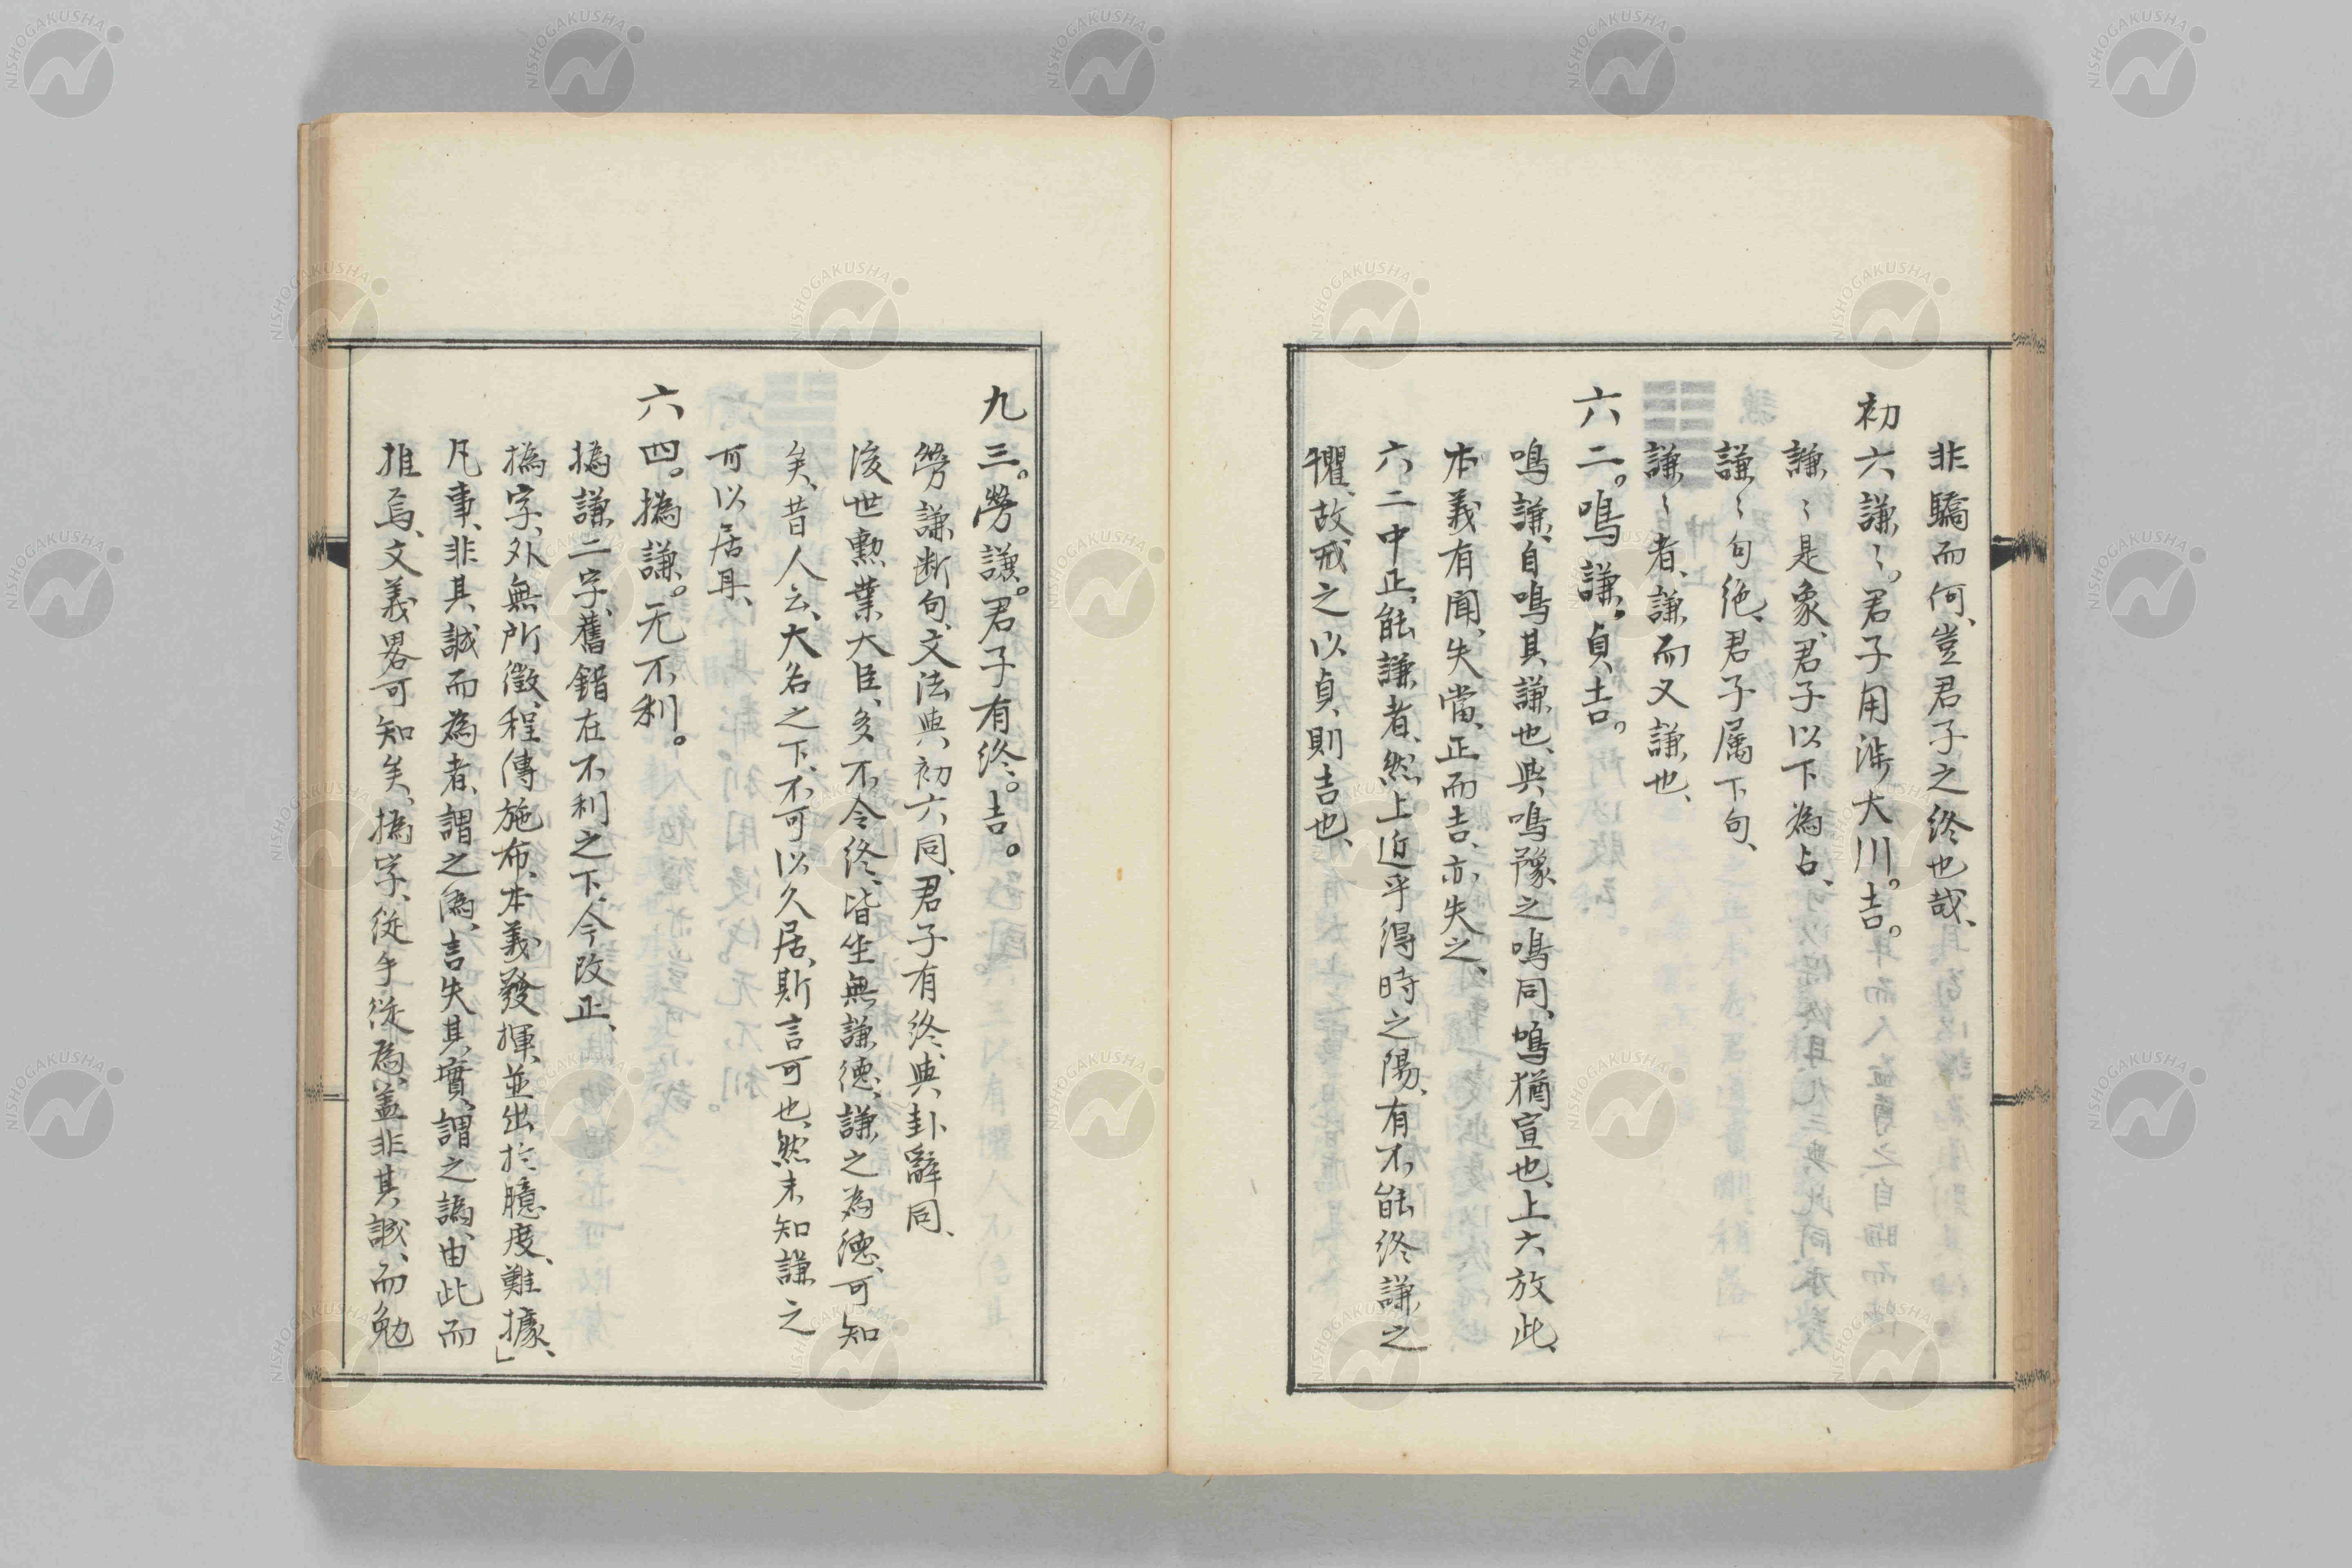 非驕而何、豈君子之終也哉、
初六謙〻。君子用涉大川。吉。
謙〻是象、君子以下為占、
謙〻句絶、君子属下句、
謙〻者、謙而又謙也、
六二。鳴謙。貞吉。
鳴謙、自鳴其謙也、與鳴豫之鳴同、鳴猶宣也、上六放此、
本義有聞、失當、正而吉、亦失之、
六二中正、能謙者、然上近乎得時之陽、有不能終謙之
懼、故戒之以貞、則吉也、
九三。勞謙。君子有終。吉。
勞謙断句、文法與初六同、君子有終、與卦辭同、
後世勲業大臣、多不令終、皆坐無謙德、謙之為德、可知
矣、昔人云、大名之下、不可以久居、斯言可也、然未知謙之
可以居耳、
六四。撝謙。无不利。
撝謙二字、舊錯在不利之下、今改正、
撝字、外無所徵、程傳施布、本義發揮、並出於臆度、難據、」
凡事、非其誠而為者、謂之偽、言失其實、謂之譌、由此而
推焉、文義畧可知矣、撝字、從手從為、盖非其誠、而勉